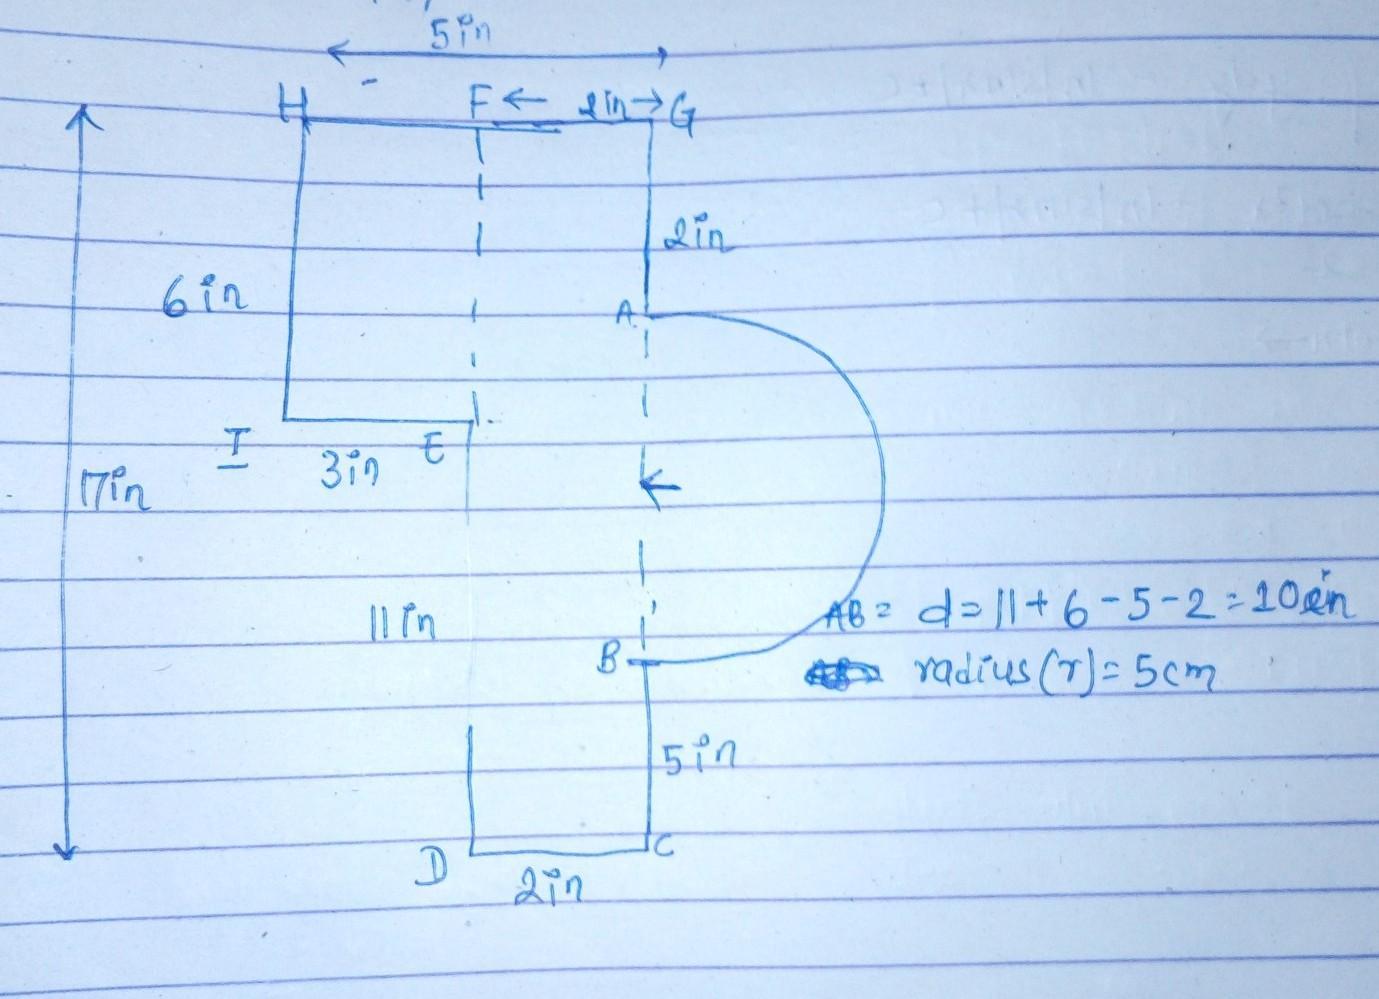 5in
H F ← 2in → G
2in
6in
A
I 3in E
17in
11in
AB = d = 11 + 6 - 5 - 2 = 10in
B
radius (r) = 5cm
5in
D C
2in